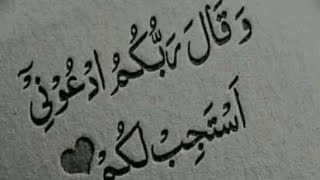 وَقَالَ رَبُّكُمُ ادْعُوْنِيْٓ
اَسْتَجِبْ لَكُمْ